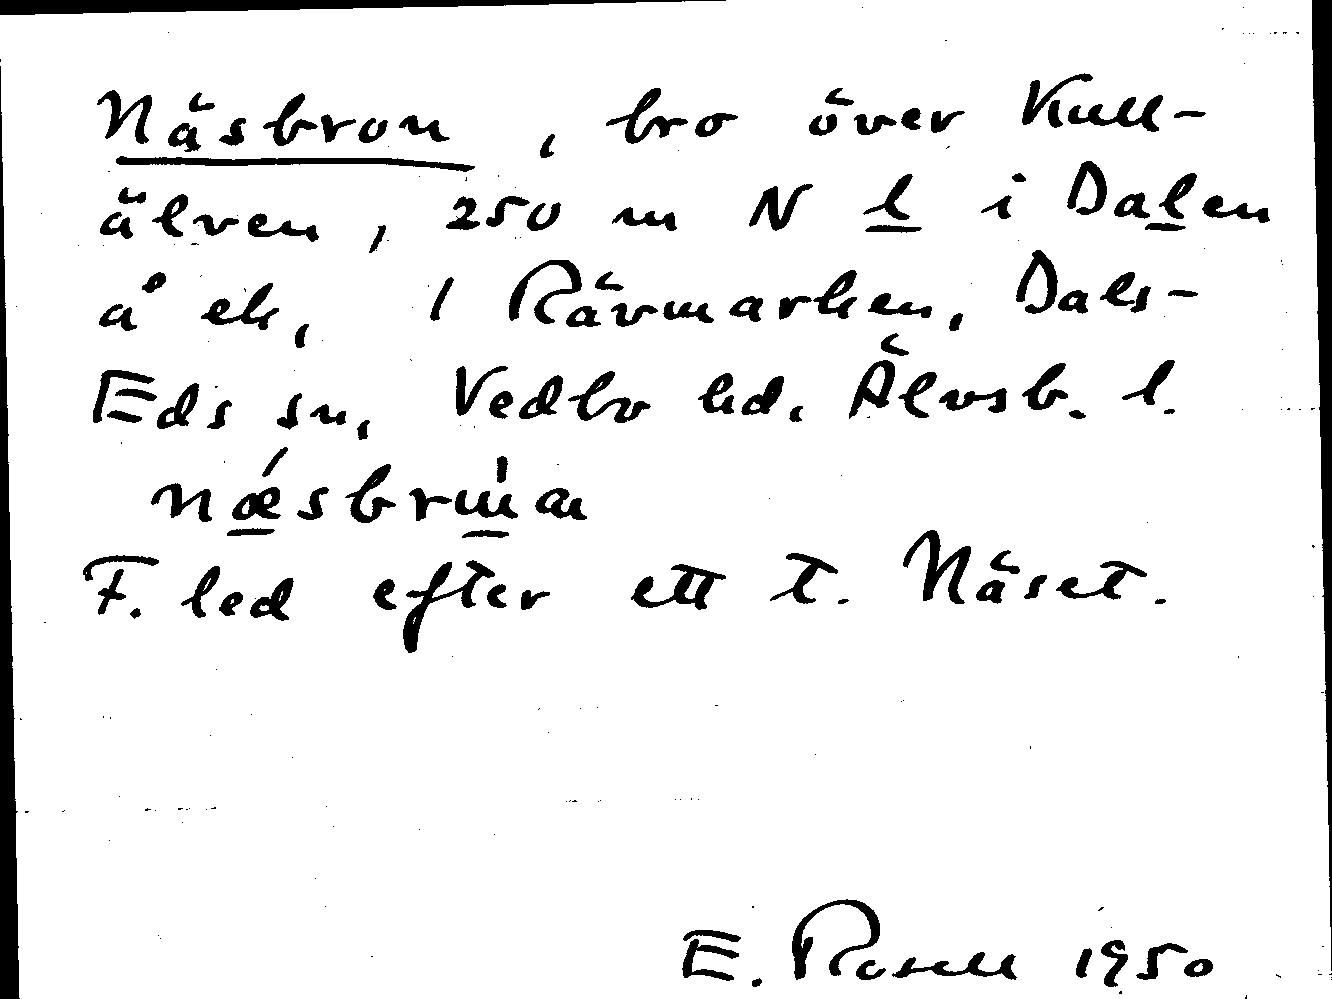 Näsbron, bro över Kull-
älven, 250 m N l i Dalen
å ek, 1 Rävmarken, Dals-
Eds sn, Vedbo hd. Älvsb. l.
F. led efter ett t. Näset.
E. Rosell 1950